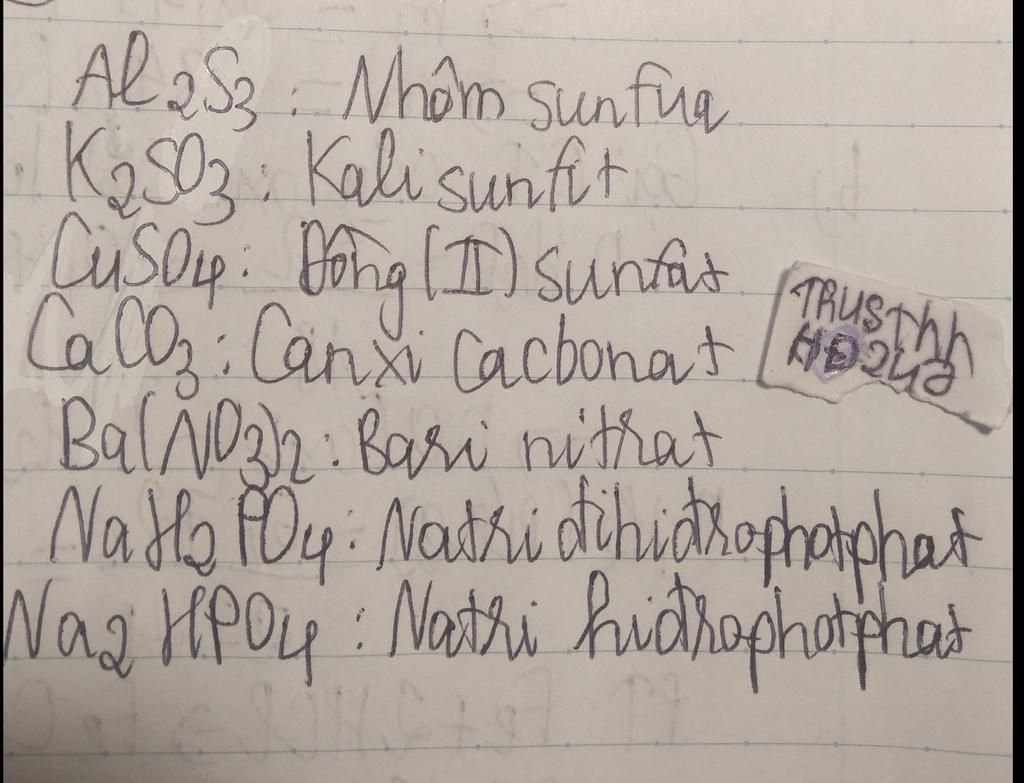 Al2S3 : Nhôm sunfua
K2SO3 : Kali sunfit
CuSO4 : Đồng (II) sunfat
CaCO3 : Canxi cacbonat
Ba(NO3)2 : Bari nitrat
NaH2PO4 : Natri đihiđrophotphat
Na2HPO4 : Natri hiđrophotphat
TRUSThh